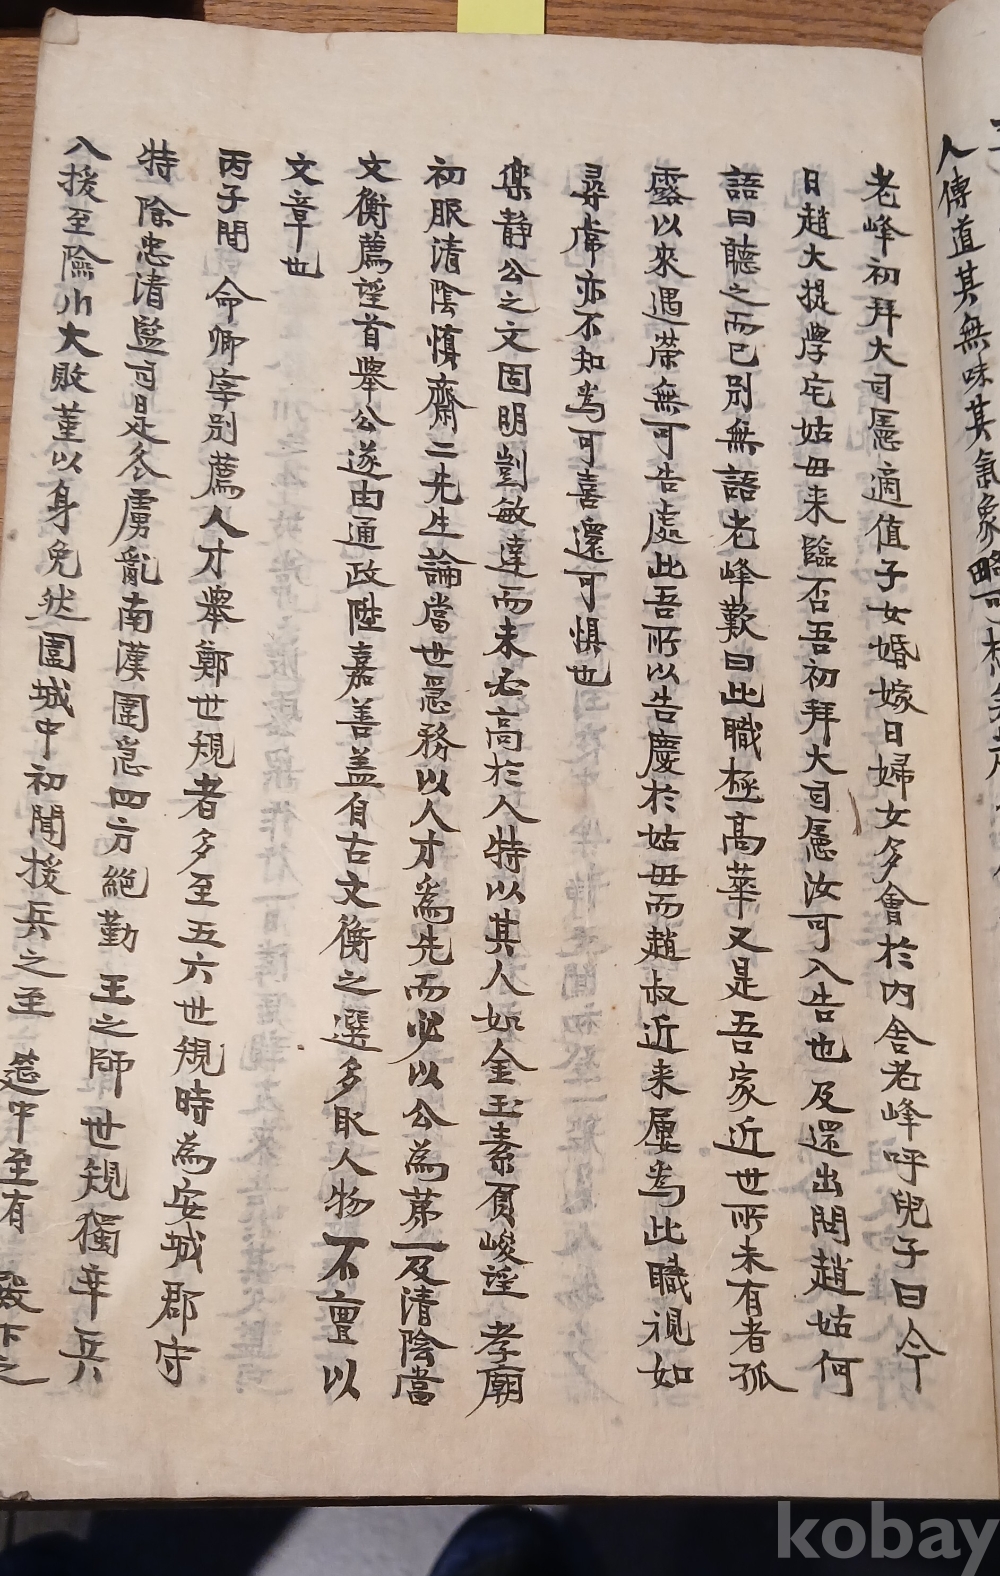 人傳道其無味其氣象略可
老峰初拜大司憲適値子女婚嫁日婦女多會於內舍老峰呼兒子曰今
日趙大提學宅姑母来臨否吾初拜大司憲汝可入告也及還出問趙姑何
語曰聽之而已別無語老峰歎曰此職極高華又是吾家近世所未有者孤
露以來遇荣無可告處此吾所以告慶於姑母而趙叔近来屢為此職視如
尋常亦不知為可喜還可惧也
樂静公之文固明剴敏達而未必高於人特以其人如金玉素負峻望 孝廟
初服清陰愼齋二先生論當世急務以人才為先而必以公為苐一及清陰當
文衡薦望首舉公遂由通政陞嘉善盖自古文衡之選多取人物不亶以
文章也
丙子間 命卿宰别薦人才舉鄭世規者多至五六世規時為安城郡守
特除忠清監司是冬虜亂南漢圍急四方絶勤 王之師世規獨率兵
入援至險川大敗董以身免然圍城中初聞援兵之至 筵中至有 殿下之
kobay